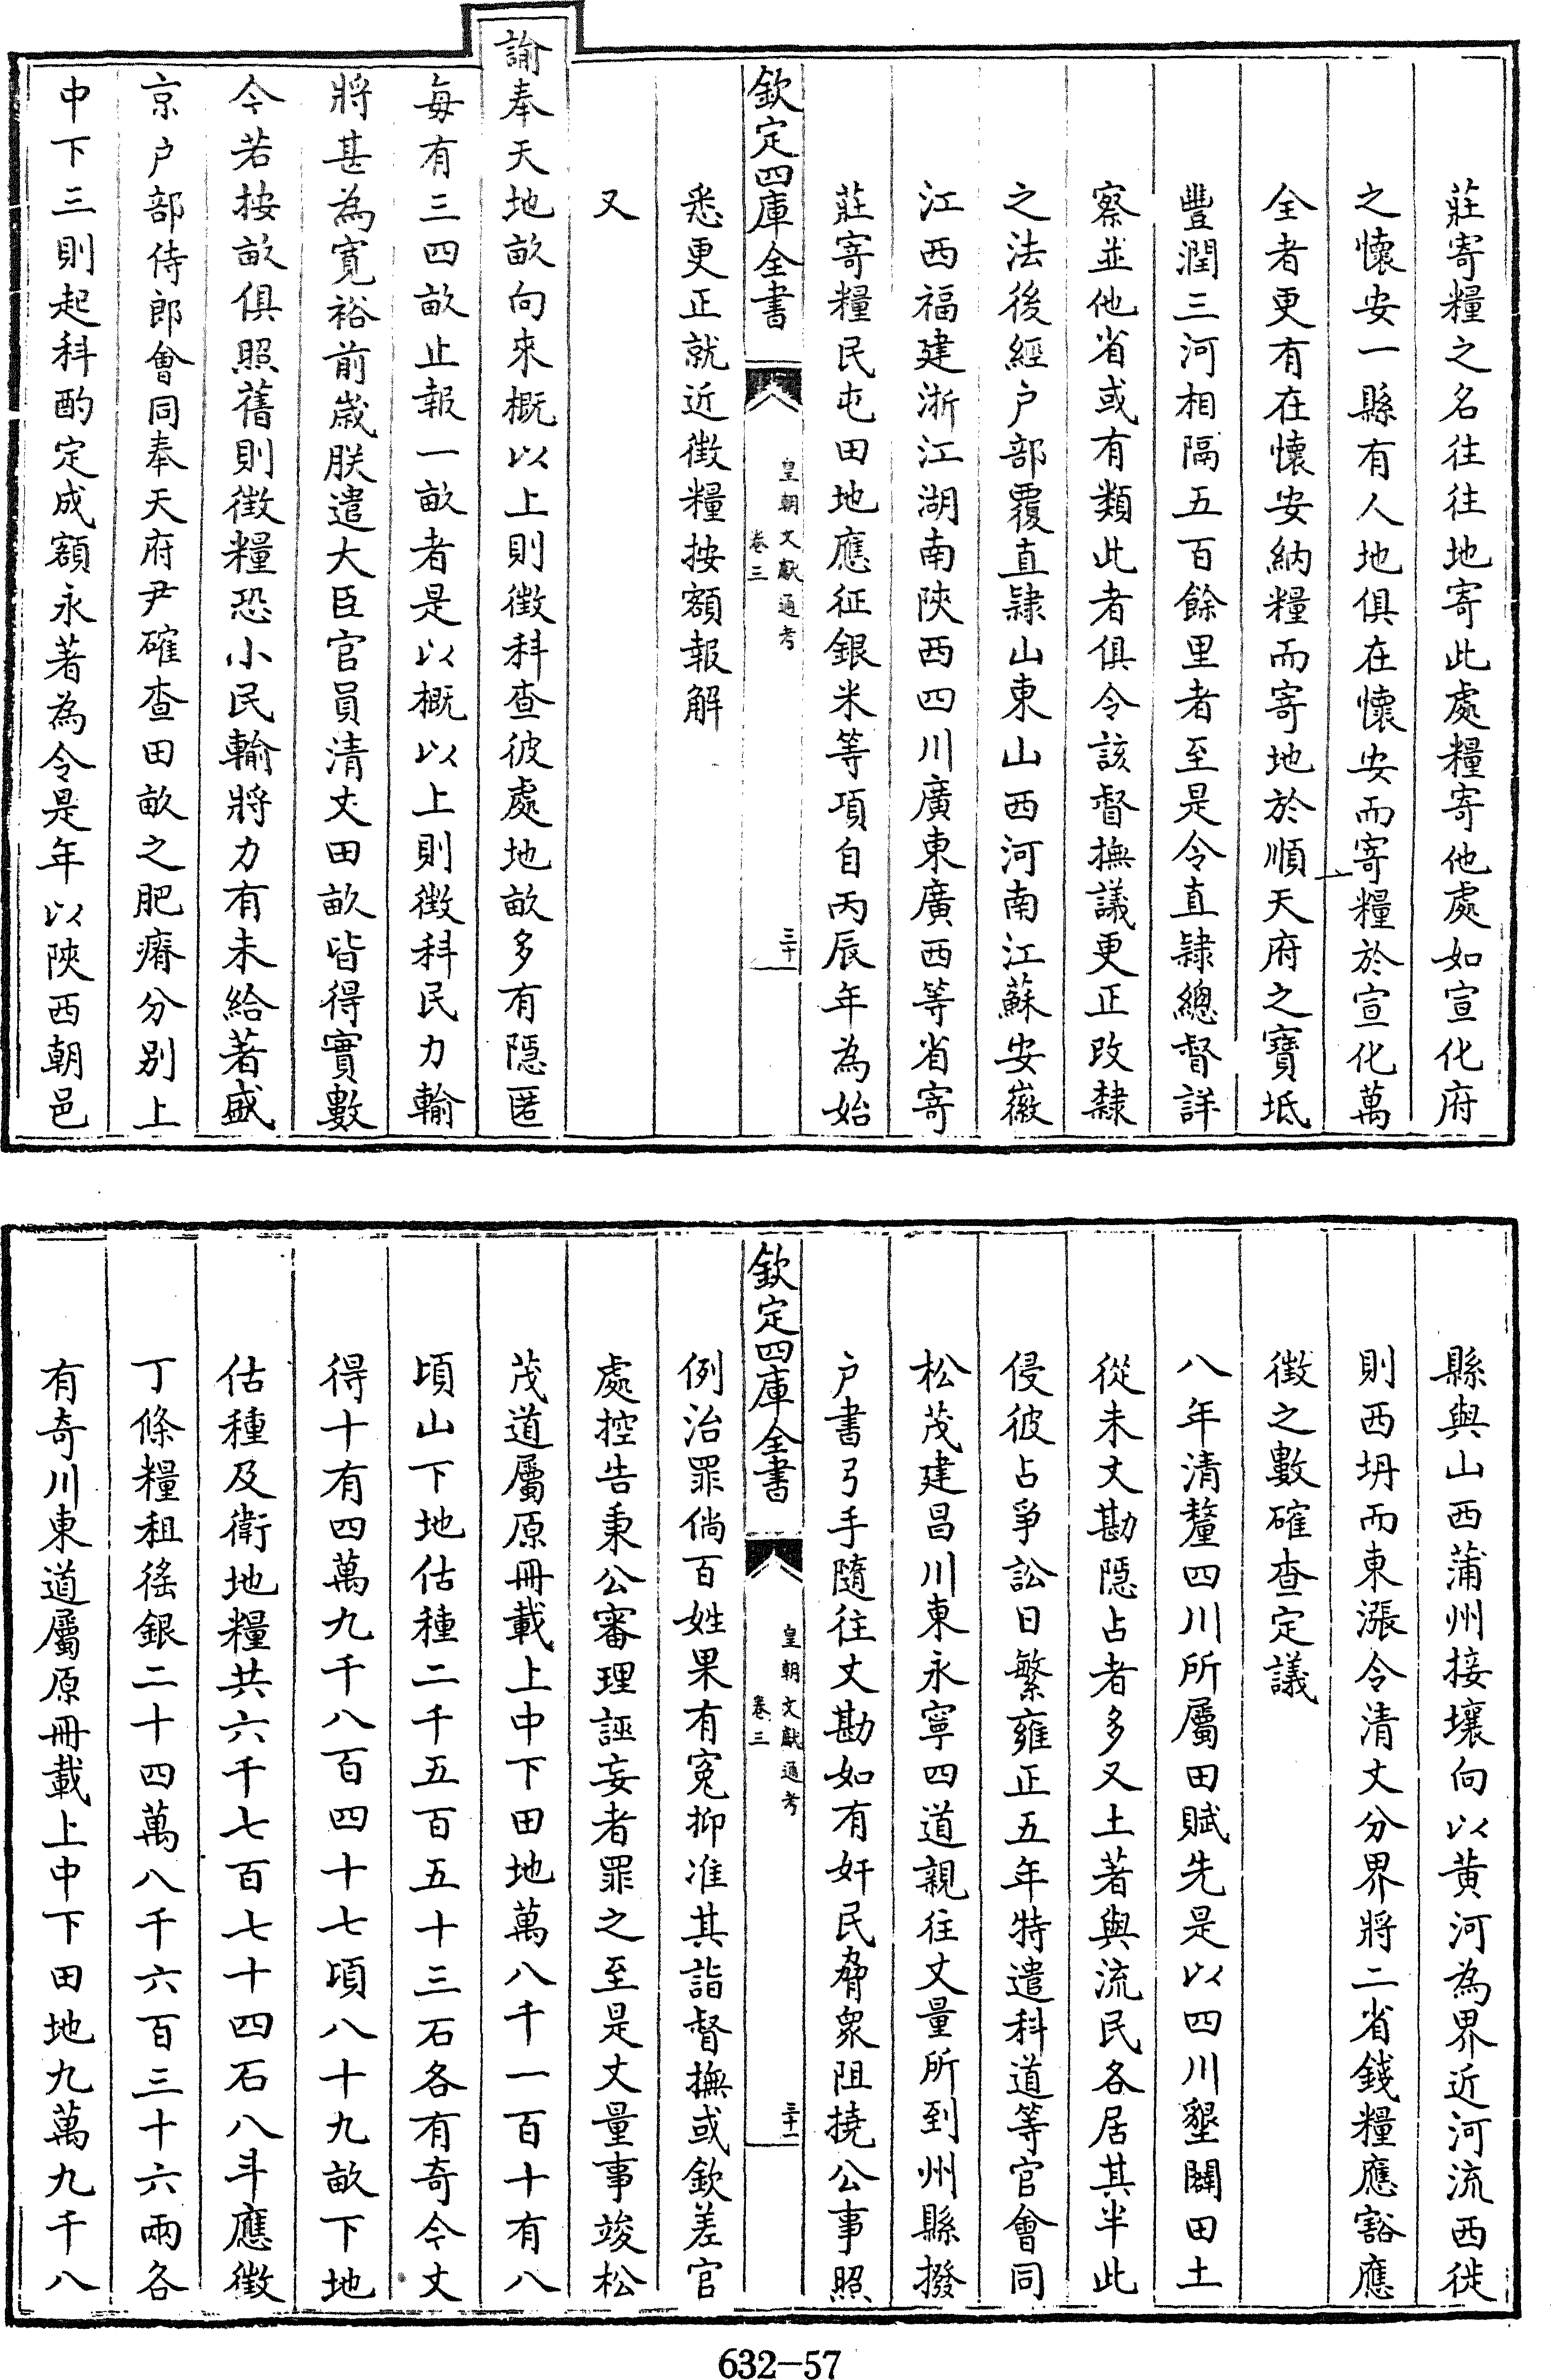 莊寄糧之名往往地寄此處糧寄他處如宣化府
之懷安一縣有人地俱在懷安而寄糧於宣化萬
全者更有在懷安納糧而寄地於順天府之寶坻
豐潤三河相隔五百餘里者至是令直隸總督詳
察並他省或有類此者俱令該督撫議更正改隸
之法後經户部覆直隸山東山西河南江蘇安徽
江西福建浙江湖南陜西四川廣東廣西等省寄
莊寄糧民屯田地應征銀米等項自丙辰年為始
欽定四庫全書
皇朝文獻通考
卷三
三十
悉更正就近徴糧按額報解
又
諭奉天地畝向來概以上則徴科查彼處地畝多有隠匿
每有三四畝止報一畝者是以概以上則徴科民力輸
將甚為寛裕前歲朕遣大臣官員清丈田畝皆得實數
今若按畝俱照舊則徴糧恐小民輸將力有未給著盛
京户部侍郎會同奉天府尹確查田畝之肥瘠分别上
中下三則起科酌定成額永著為令是年以陜西朝邑
縣與山西蒲州接壤向以黄河為界近河流西徙
則西坍而東漲令清丈分界將二省錢糧應豁應
徴之數確查定議
八年清釐四川所屬田賦先是以四川墾闢田土
從未丈勘隠占者多又土著與流民各居其半此
侵彼占爭訟日繁雍正五年特遣科道等官會同
松茂建昌川東永寧四道親往丈量所到州縣撥
户書弓手隨往丈勘如有奸民脅衆阻撓公事照
欽定四庫全書
皇朝文獻通考
卷三
三十一
例治罪倘百姓果有寃抑准其詣督撫或欽差官
處控告秉公審理誣妄者罪之至是丈量事竣松
茂道屬原冊載上中下田地萬八千一百十有八
頃山下地估種二千五百五十三石各有奇今丈
得十有四萬九千八百四十七頃八十九畝下地
估種及衛地糧共六千七百七十四石八斗應徴
丁條糧租徭銀二十四萬八千六百三十六兩各
有奇川東道屬原冊載上中下田地九萬九千八
632-57